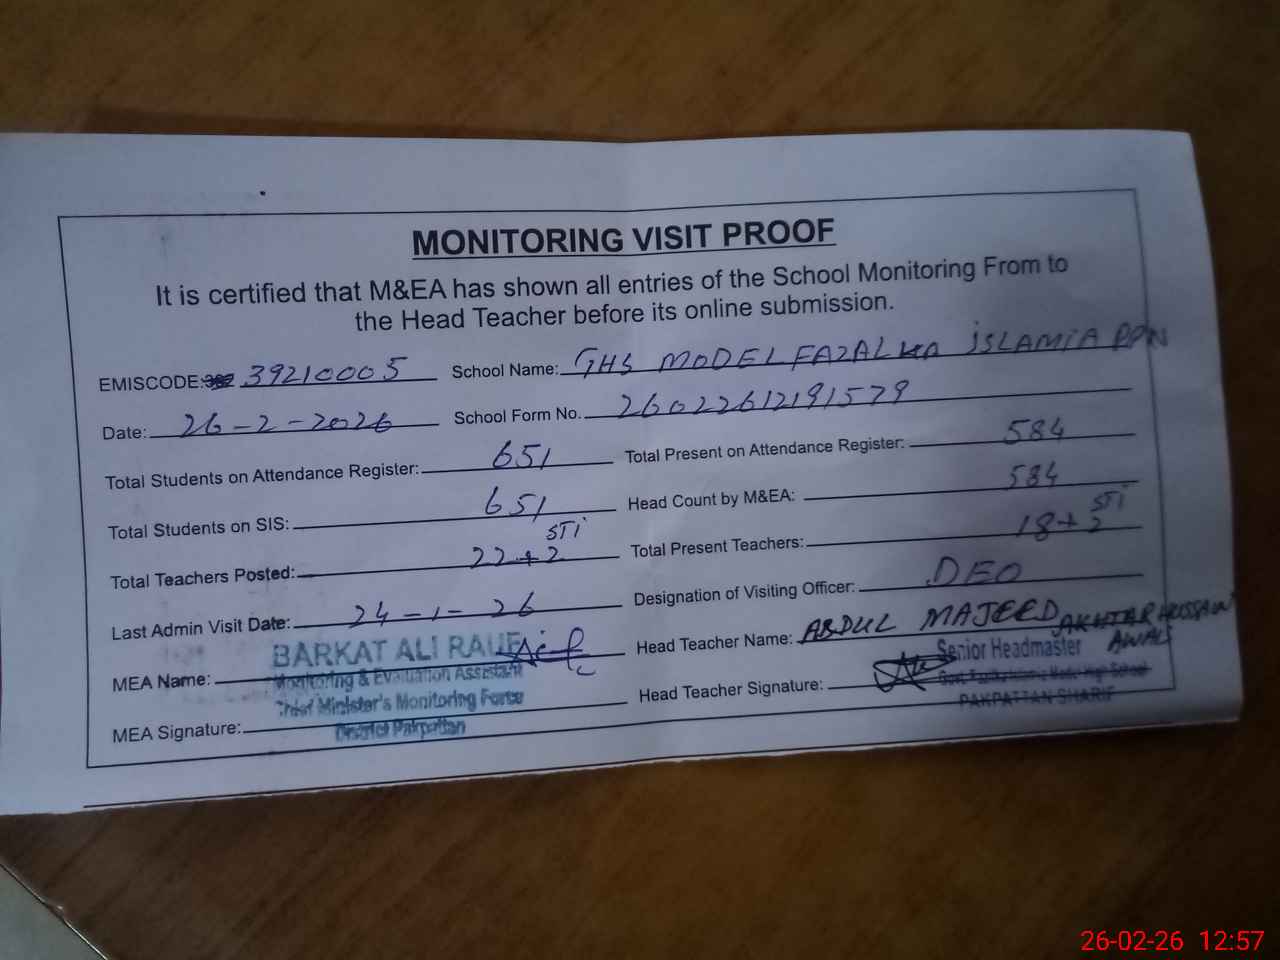 MONITORING VISIT PROOF
It is certified that M&EA has shown all entries of the School Monitoring From to
the Head Teacher before its online submission.
EMISCODE: 39210005 School Name: GHS MODEL FAZALKA ISLAMIA PPN
Date: 26-2-2026 School Form No. 26022612191579
Total Students on Attendance Register: 651 Total Present on Attendance Register: 584
Total Students on SIS: 651 Head Count by M&EA: 584
Total Teachers Posted: 22+2 STi Total Present Teachers: 18+2 STi
Last Admin Visit Date: 24-1-26 Designation of Visiting Officer: DEO
MEA Name: BARKAT ALI RAUF Head Teacher Name: ABDUL MAJEED AKHTAR HUSSAIN AWAN
Monitoring & Evaluation Assistant Senior Headmaster
Chief Minister's Monitoring Force
MEA Signature: District Pakpattan Head Teacher Signature: PAKPATTAN SHARIF
26-02-26 12:57